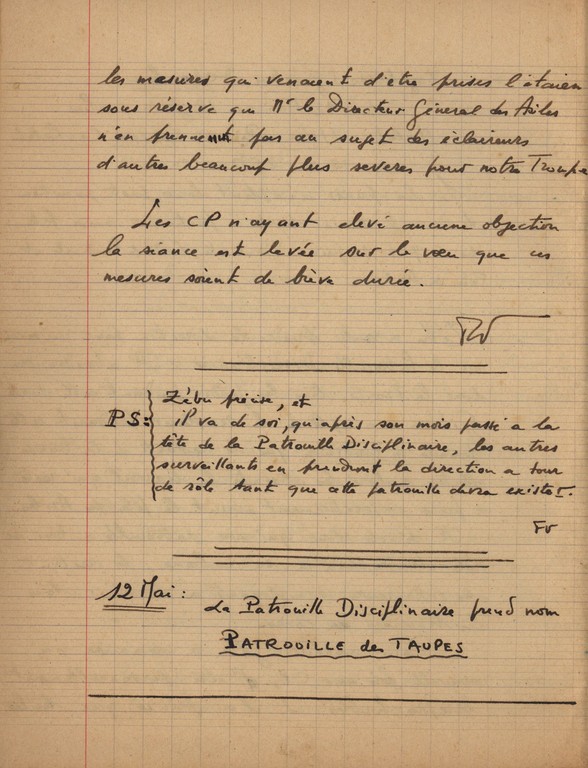 les mesures qui venaient d'être prises l'étaien
sous réserve que Mr le Directeur Général des Asiles
n'en prennent pas au sujet des éclaireurs
d'autres beaucoup plus severes pour notre Troupe
Les CP n'ayant elevé aucune objection
la séance est levée sur le vœu que ces
mesures soient de brève durée.
Zébu précise, et
PS: il va de soi, qu'après son mois passé a la
tête de la Patrouille Disciplinaire, les autres
surveillants en prendront la direction a tour
de rôle tant que cette patrouille devra exister.
12 Mai: La Patrouille Disciplinaire prend nom
PATROUILLE des TAUPES